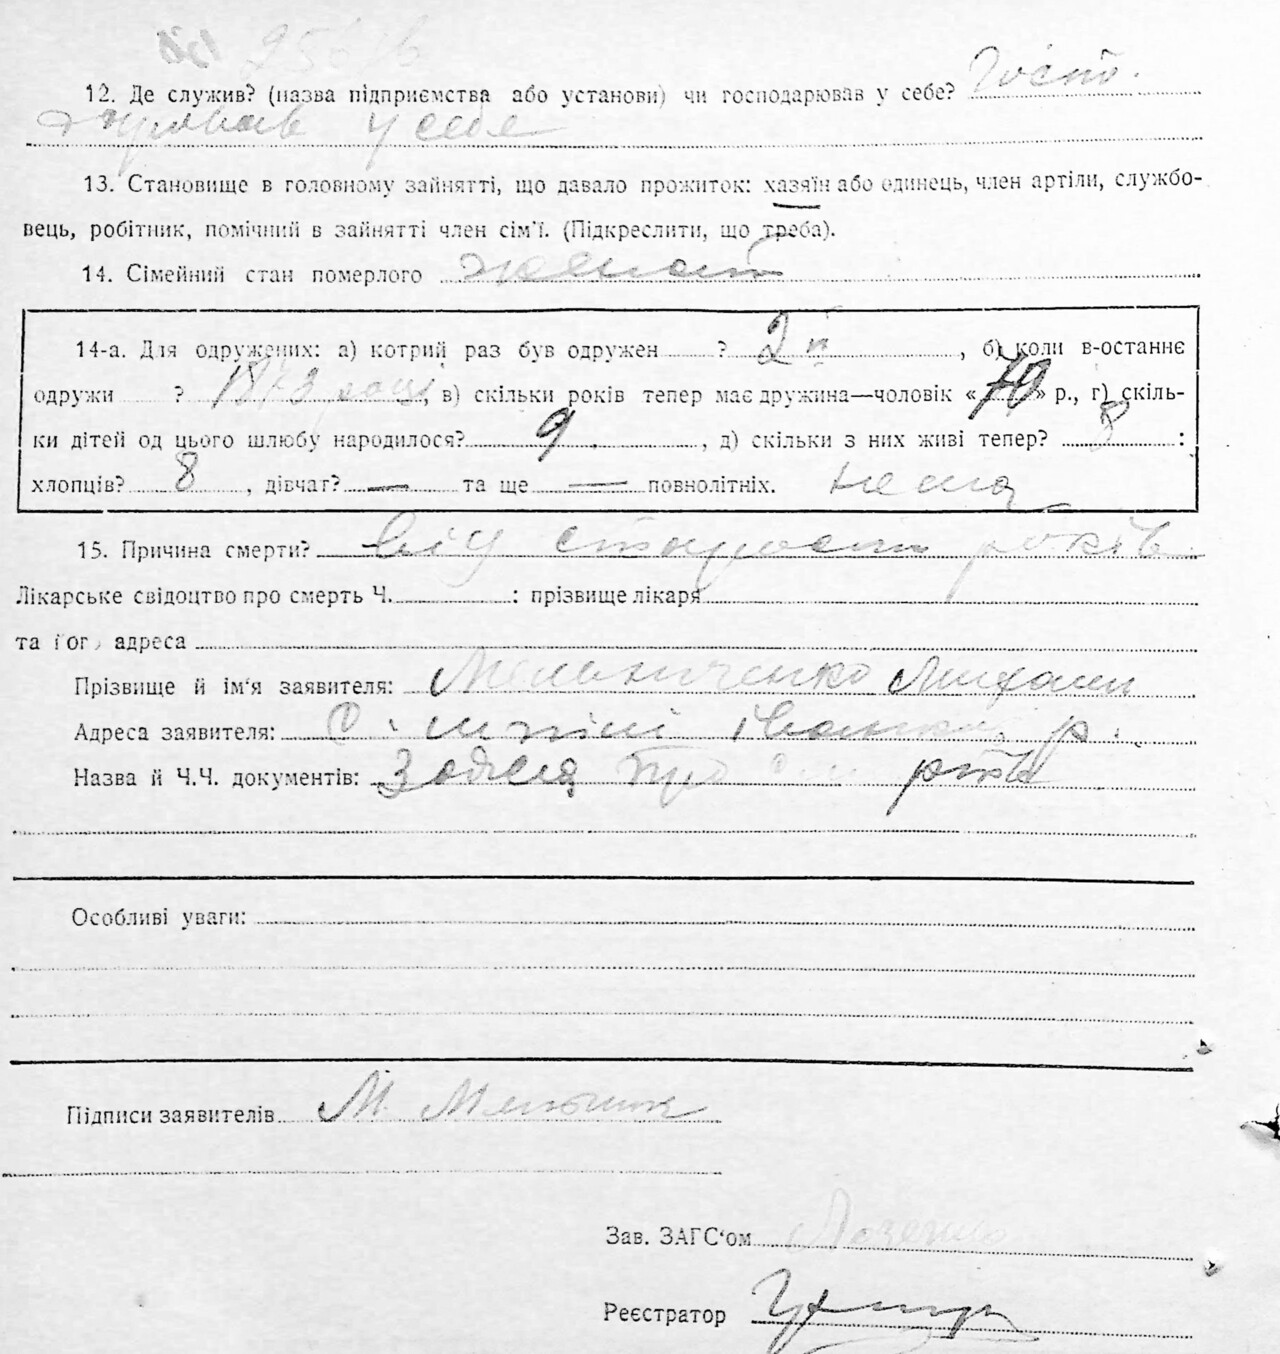 12. Де служив? (назва підприємства або установи) чи господарював у себе? Госпо-
дарював у себе
13. Становище в головному зайнятті, що давало прожиток: хазяїн або одинець, член артіли, службо-
вець, робітник, помічний в зайнятті член сім'ї. (Підкреслити, що треба).
14. Сімейний стан померлого женат
14-а. Для одружених: а) котрий раз був одружен ? 2й, б) коли в-останнє
одружи ? 1873 році, в) скільки років тепер має дружина—чоловік «70» р., г) скіль-
ки дітей од цього шлюбу народилося? 9, д) скільки з них живі тепер? 8 :
хлопців? 8, дівчат? — та ще — повнолітніх. нема
15. Причина смерти? від старости років
Лікарське свідоцтво про смерть Ч. : прізвище лікаря
та його адреса
Прізвище й ім'я заявителя: Мельниченко Михайло
Адреса заявителя: с. р.
Назва й Ч.Ч. документів: про
Особливі уваги:
Підписи заявителів М. Мельник
Зав. ЗАГС'ом
Реєстратор